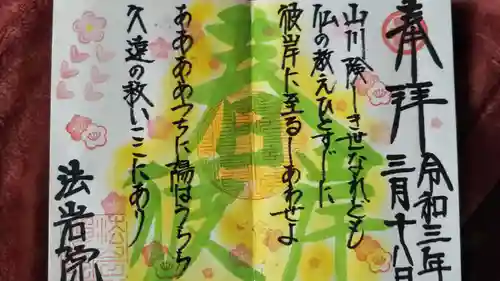 奉拝
令和三年
三月十八日
山川険しきせなれども
仏の教えひとすじに
彼岸に至るしあわせよ
ああああうちに陽はうちち
久遠の救いここにあり
法岩院
春
彼岸